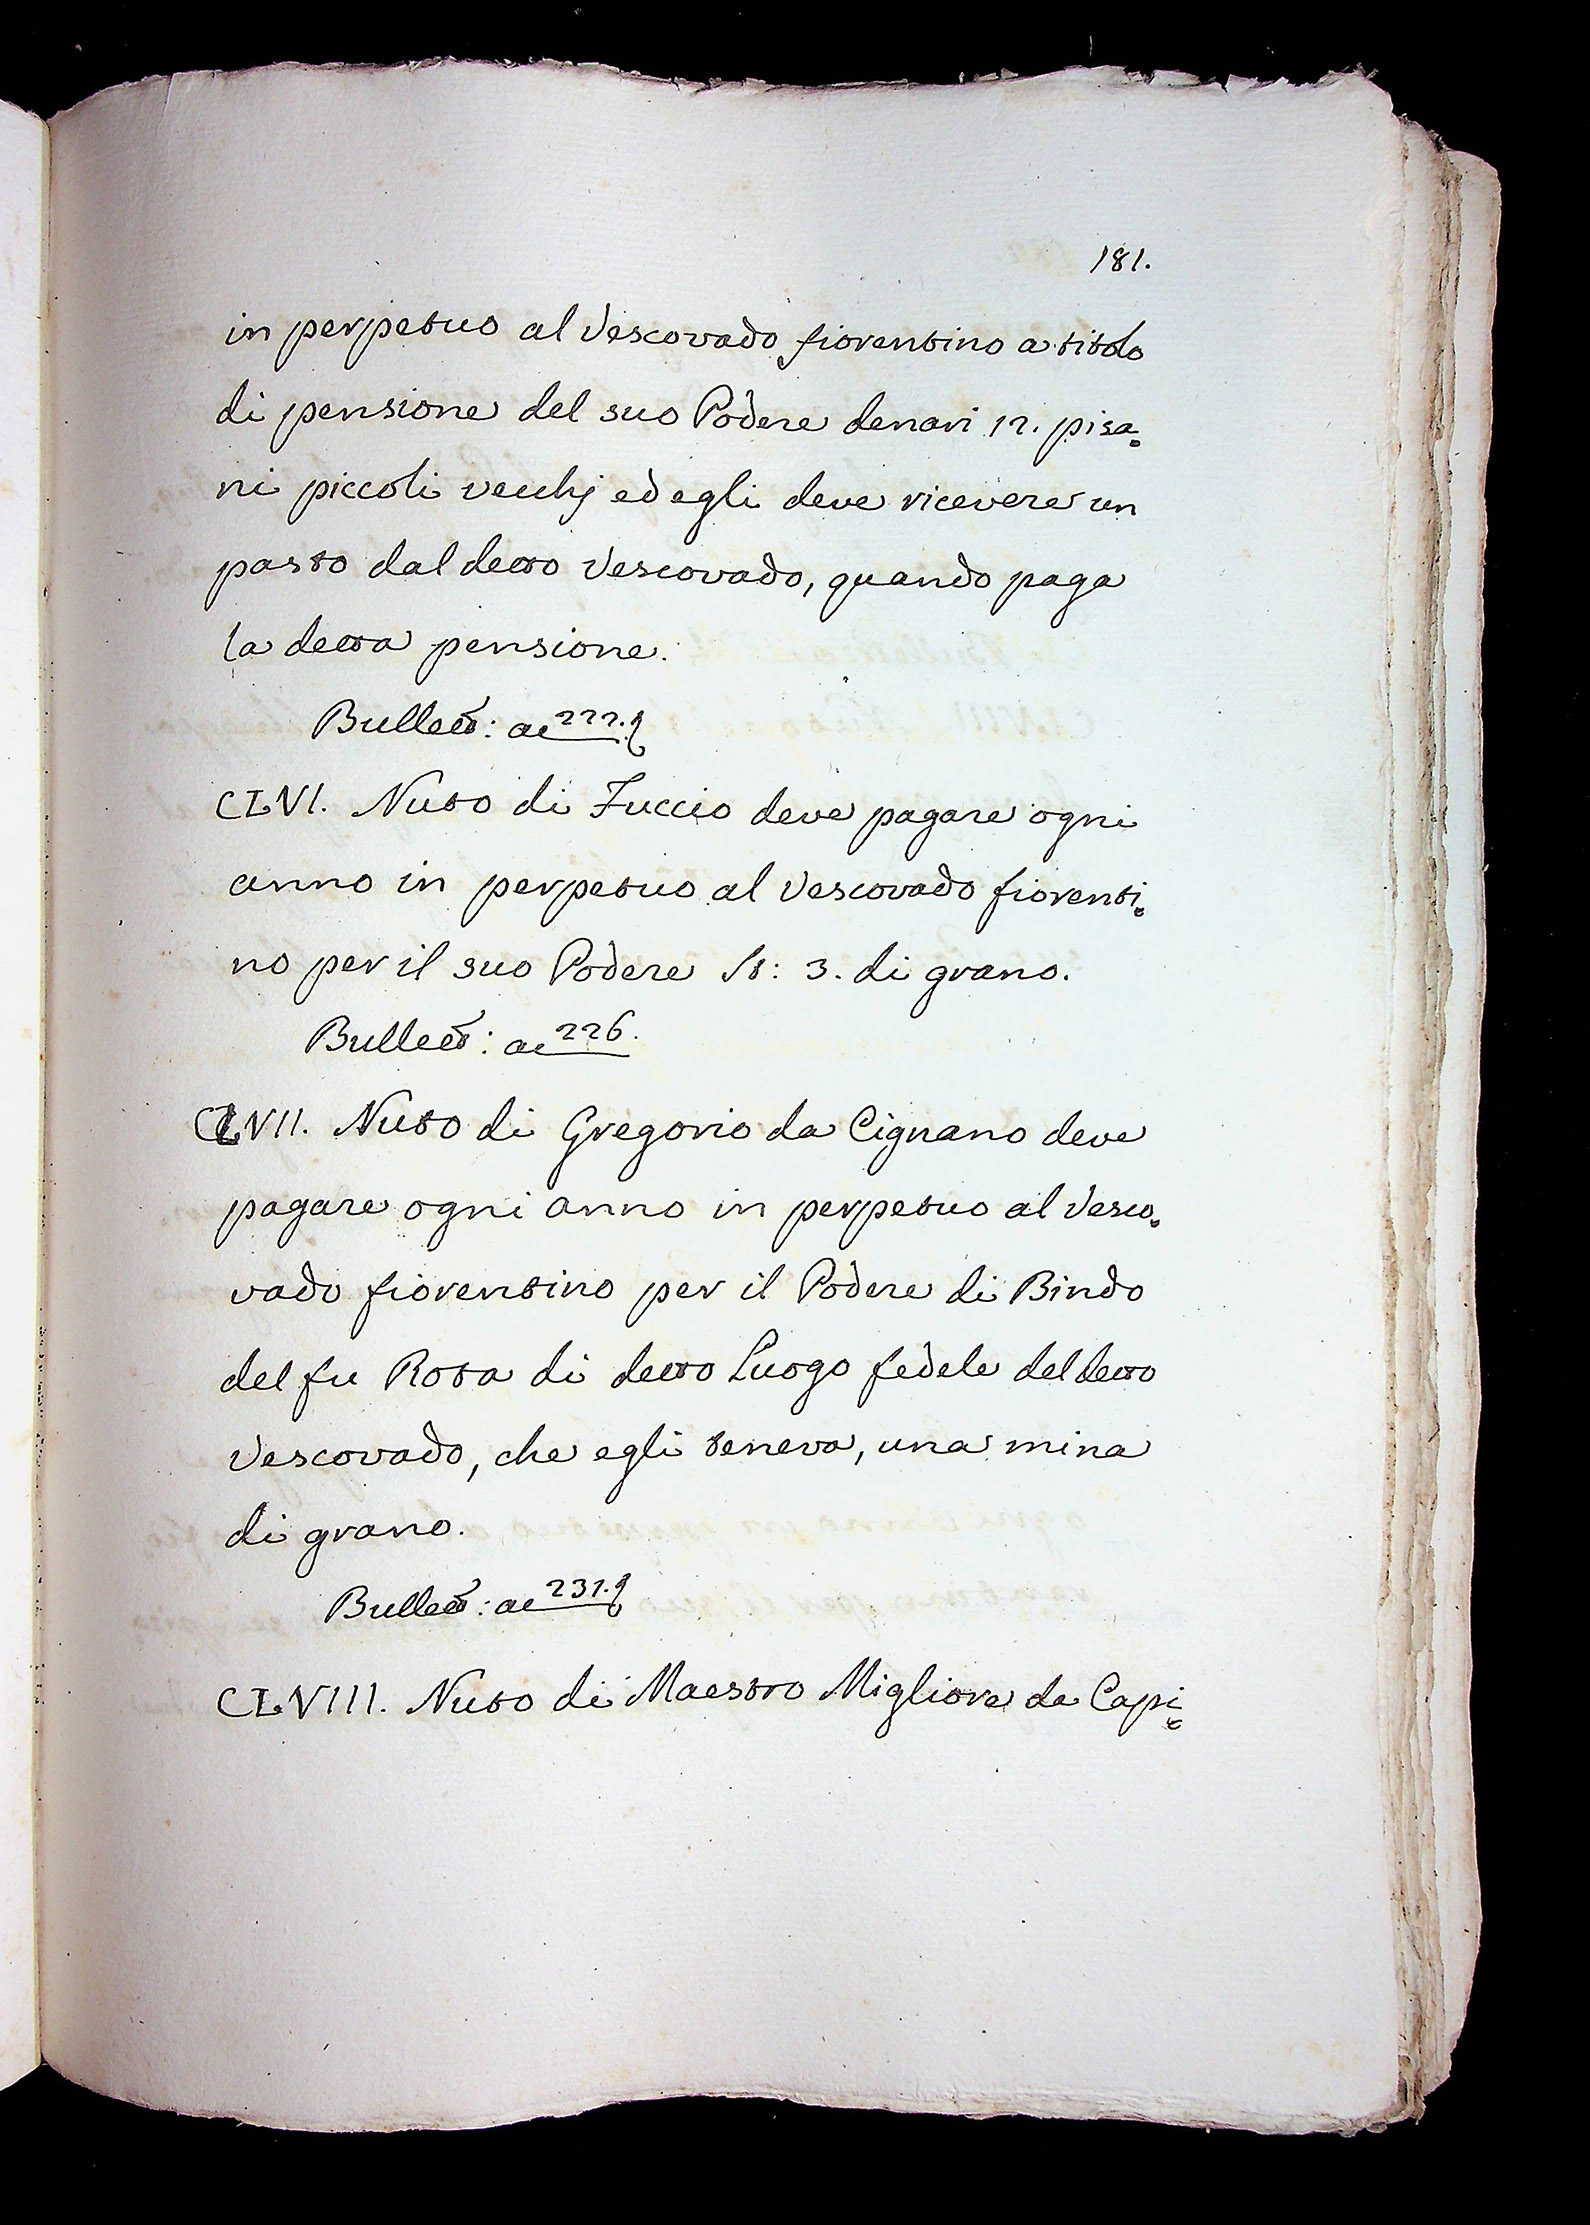 181.
in perpetuo al Vescovado fiorentino a titolo
di pensione del suo Podere denari 12. pisa=
ni piccoli vecchj ed egli deve ricevere un
pasto dal detto Vescovado, quando paga
la detta pensione.
Bullett: ac 222.
CLVI. Nuto di Fuccio deve pagare ogni
anno in perpetuo al Vescovado fiorenti=
no per il suo Podere St: 3. di grano.
Bullett: ac 226.
CLVII. Nuto di Gregorio da Cignano deve
pagare ogni anno in perpetuo al Vesco=
vado fiorentino per il Podere di Bindo
del fu Rota di detto Luogo fedele del detto
Vescovado, che egli teneva, una mina
di grano.
Bullett: ac 231.
CLVIII. Nuto di Maestro Migliore da Capi=